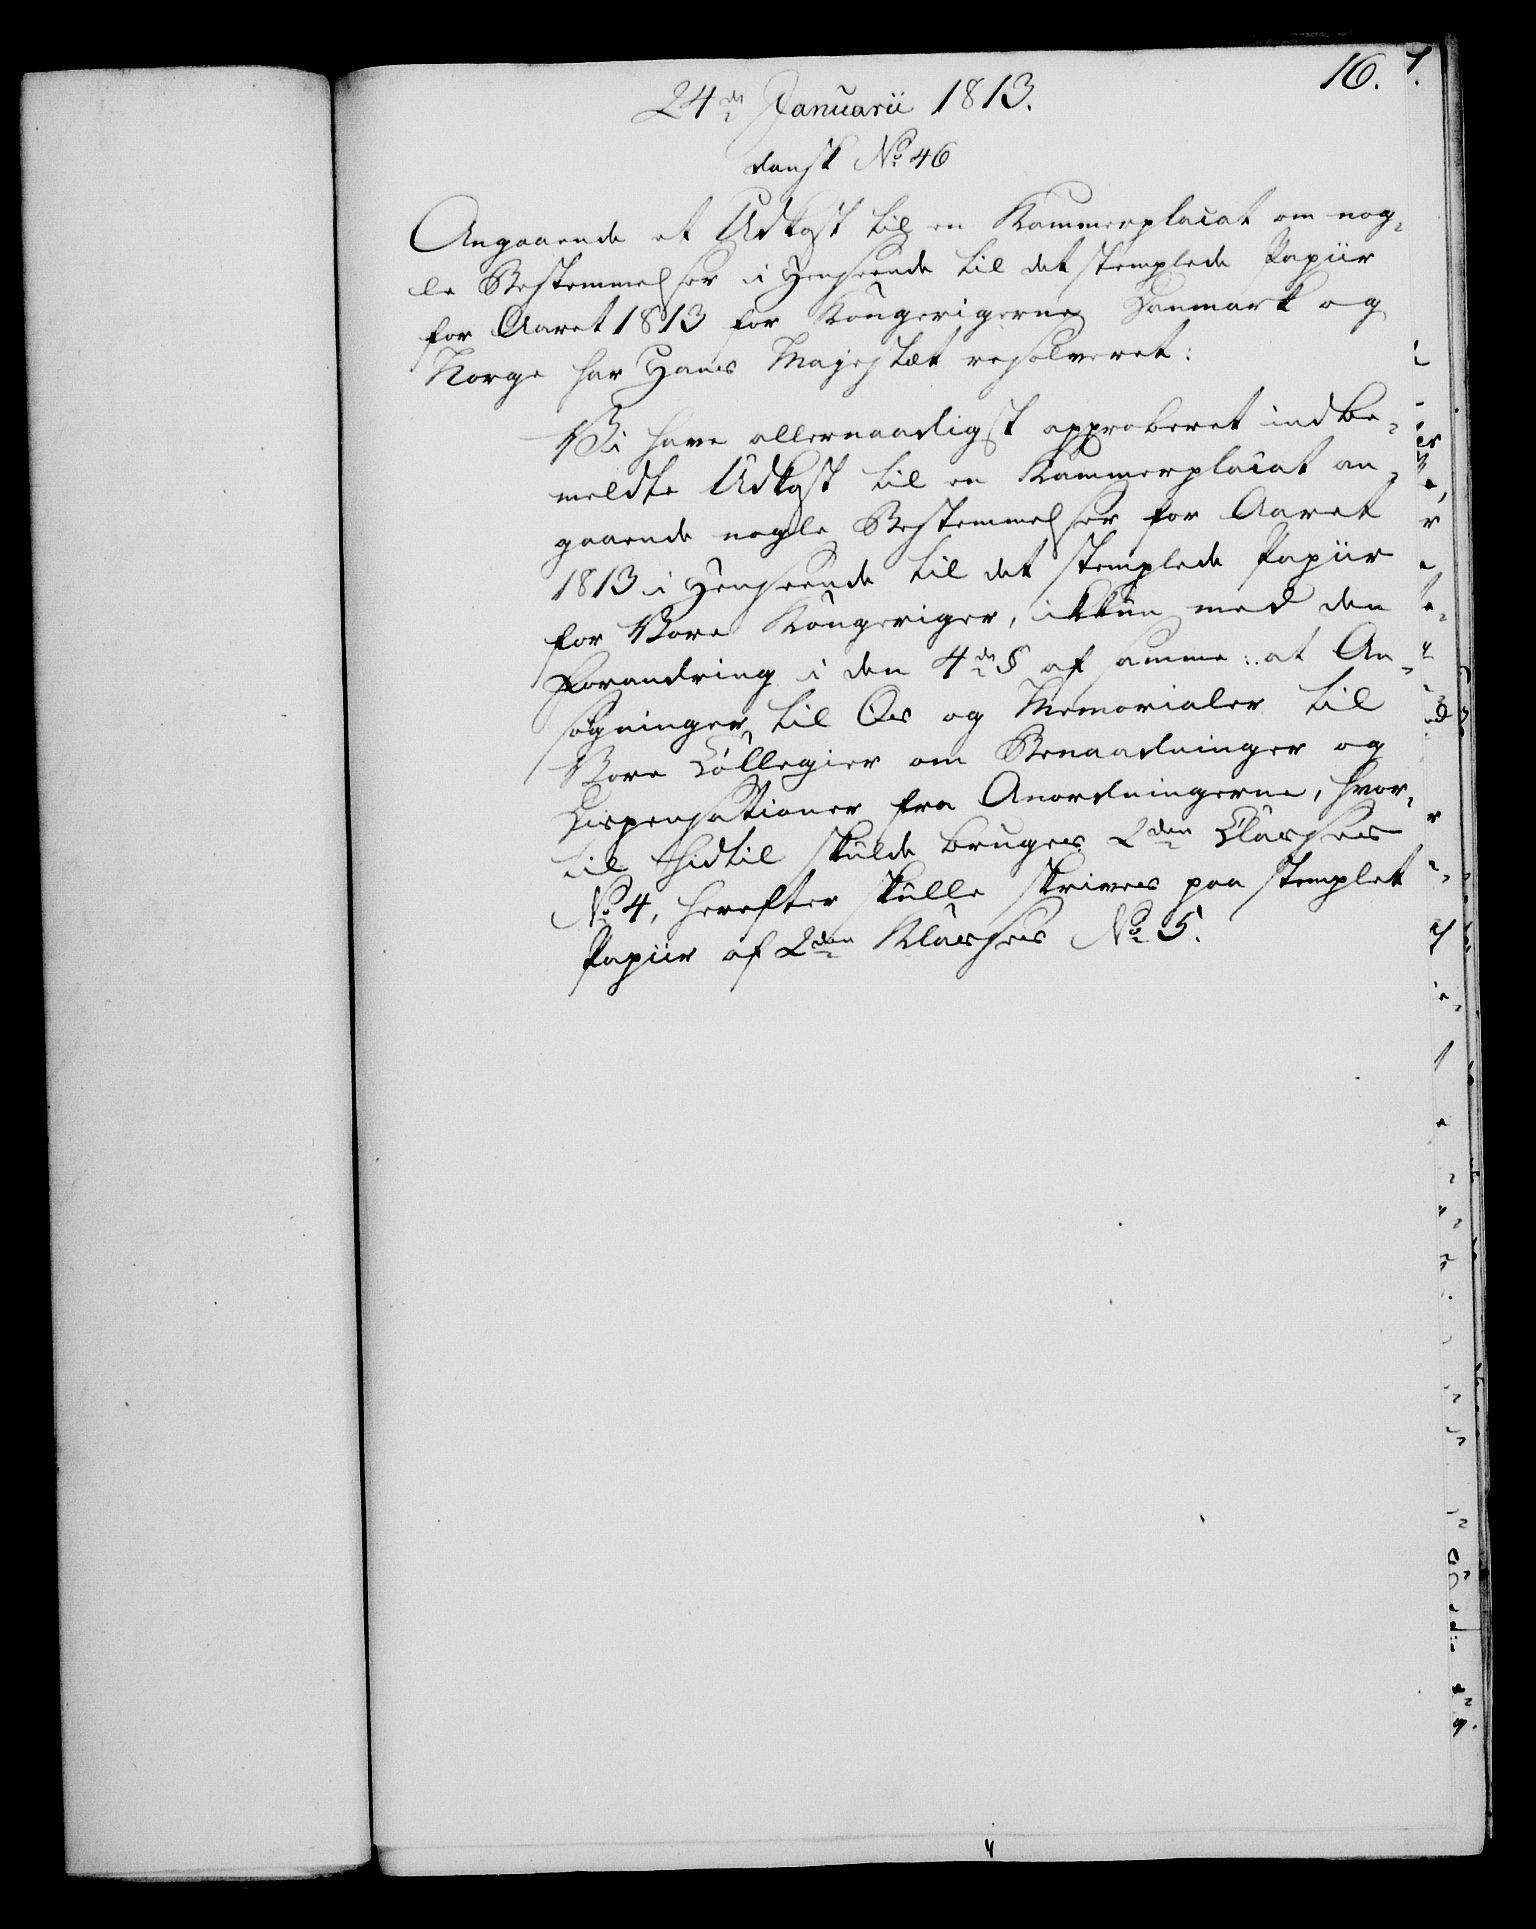 16.
24de Januarii 1813.
dansk No 46
Angaaende et Udkast til en Kammerplacat om nog-
le Bestemmelser i Henseende til det stemplede Papiir
for Aaret 1813 for Kongerigerne Danmark og
Norge har Hans Majestæt resolveret:
Vi have allernaadigst approberet indbe-
meldte Udkast til en Kammerplacat an-
gaaende nogle Bestemmelser for Aaret
1813 i Henseende til det stemplede Papiir
for Vore Kongeriger, ikkun med den
Forandring i den 4de § af samme: at An-
søgninger til Os og Memorialer til
Vore Collegier om Benaadninger og
Dispensationer fra Anordningerne, hvor-
til hidtil skulde bruges 2den Classes
No 4, herefter skulle skrives paa stemplet
Papiir af 2den Klasses No 5.